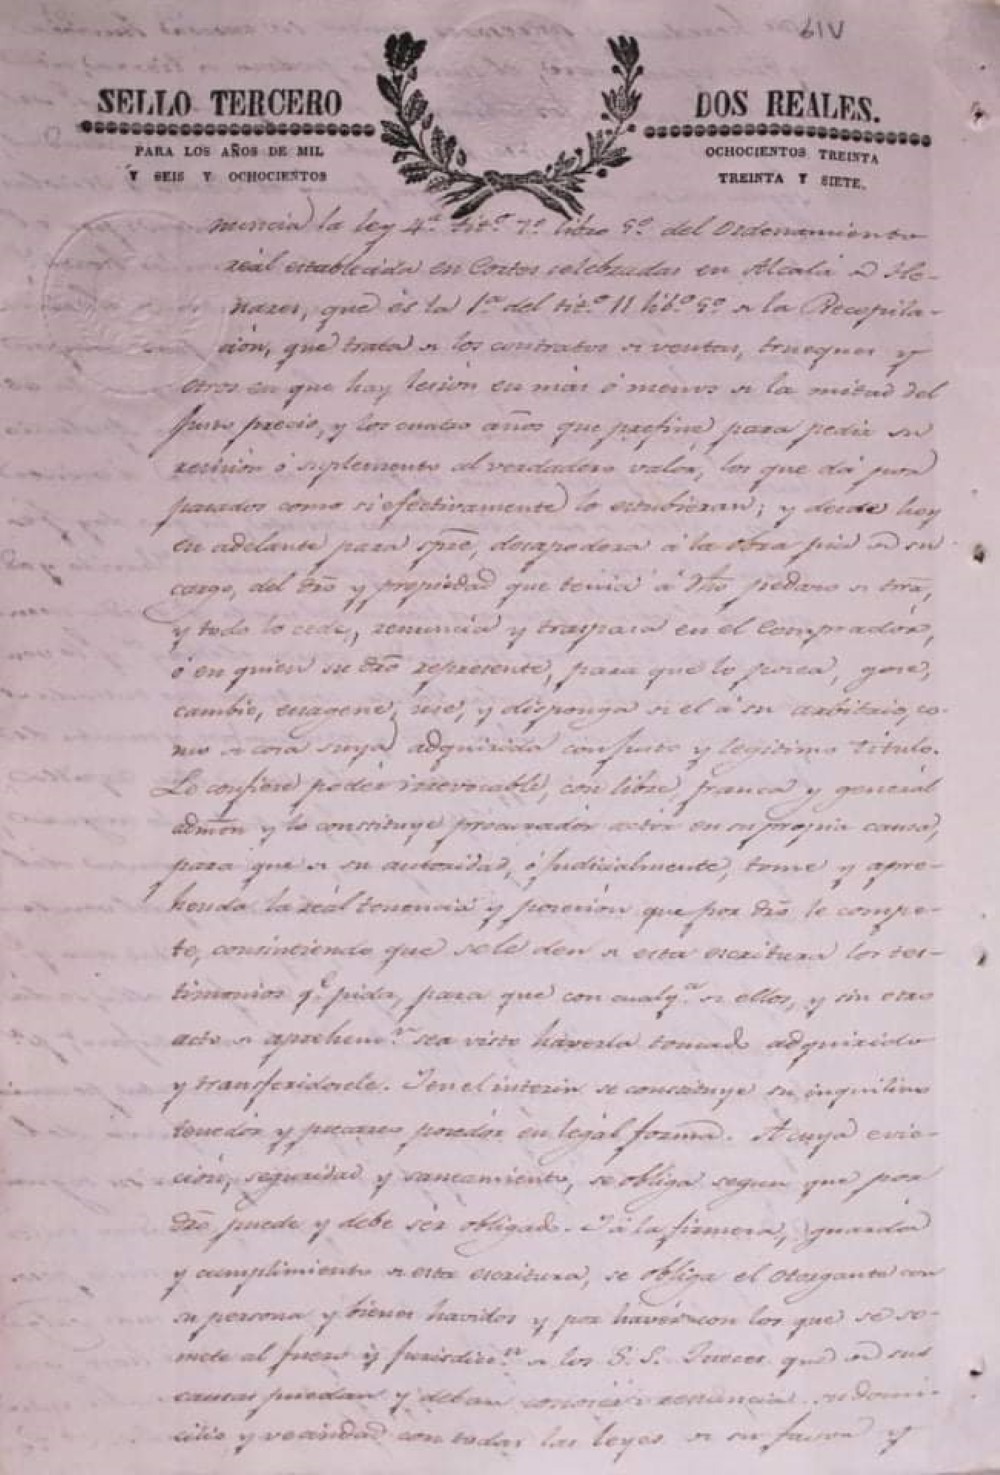 SELLO TERCERO
DOS REALES.
PARA LOS AÑOS DE MIL
OCHOCIENTOS TREINTA
Y SEIS Y OCHOCIENTOS
TREINTA Y SIETE.
nuncia la ley 4ª tit.º 7º libro 5º del Ordenamiento
reál establecida en Cortes celebradas en Alcalá de He-
nares, que és la 1ª del tit.º 11 lib.º 5º de la Recopila-
ción, que trata de los contratos de ventas, trueques y
otros en que hay lesión en más ó menos de la mitad del
Justo precio, y los cuatro años que prefine para pedir su
recisión ó suplemento al verdadero valór, los que dá por
pasados como si efectivamente lo estubieran; y desde hoy
en adelante para spre, desapodera á la obra pia de su
cargo, del dro y propiedad que tenia á dho pedazo de trra,
y todo lo cede, renuncia y traspasa en el Compradór,
ó en quien su dro represente, para que lo posea, goce,
cambie, enagene, use, y disponga de el á su arbitrio, co-
mo de cosa suya adquirida con Justo y legitimo titulo.
Le confiere podér irrevocable, con libre, franca y generál
admon y lo constituye procuradór actór en su propia causa,
para que de su autoridad, ó Judicialmente, tome y apre-
henda la reál tenencia y posesión que por dro le compe-
te, consintiendo que se le den de esta escritura los tes-
timonios q.e pida, para que con cualq.a de ellos, y sin otro
acto de aprehen.n sea visto haverla tomado adquirido
y transferidosele. Y en el interin se constituye su inquilino
tenedór y precario poseedór en legál forma. A cuya evic-
ción, seguridad y saneamiento, se obliga segun que por
dro puede y debe sér obligado. Y á la firmeza, guarda
y cumplimiento de esta escritura, se obliga el otorgante con
su persona y bienes havidos y por havér con los que se so-
mete al fuero y Jurisdicc.n de los S. S. Jueces que de sus
causas puedan y deban conocér renuncia su domi-
cilio y vecindad con todas las leyes de su favor y